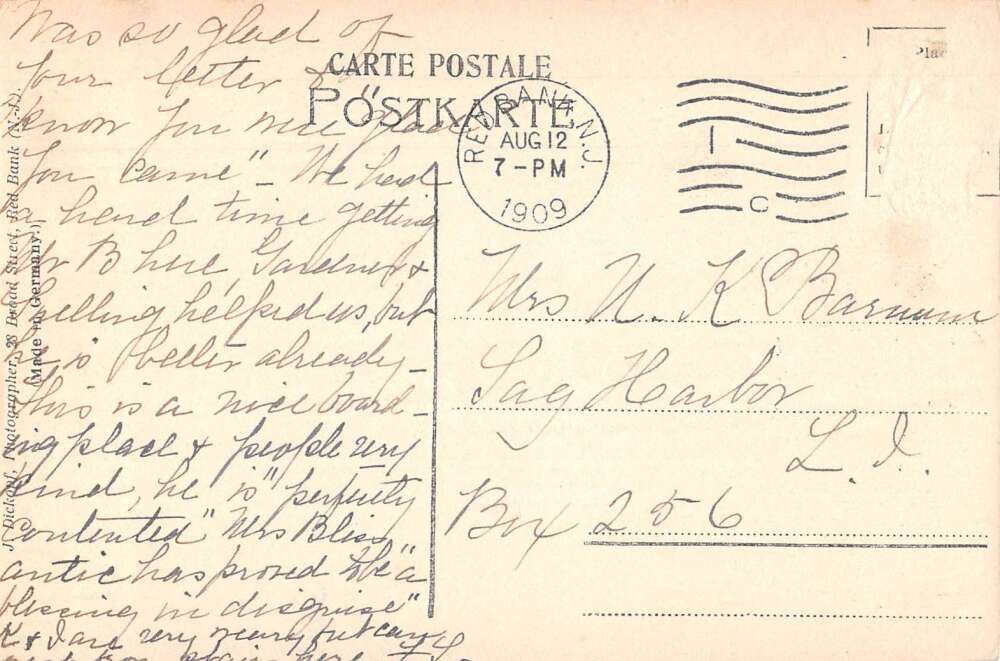 Was so glad of
your letter &
know you nice place
You came" - We had
a hard time getting
Mr B here, Gardner &
Snelling helped us, but
he is better already -
This is a nice board-
ing place & people very
kind, he is "perfectly
contented" Mrs Bliss
antic has proved to be "a
blessing in disguise"
K & I are very weary but can
CARTE POSTALE
POSTKARTE
RED BANK, N.J.
AUG 12
7-PM
1909
1 C
Pla
Mrs N. K Barnum
Sag Harbor
L. I.
Box 256
J. Dickopf, Photographer, 28 Broad Street, Red Bank (N.-J.).
(Made in Germany.)